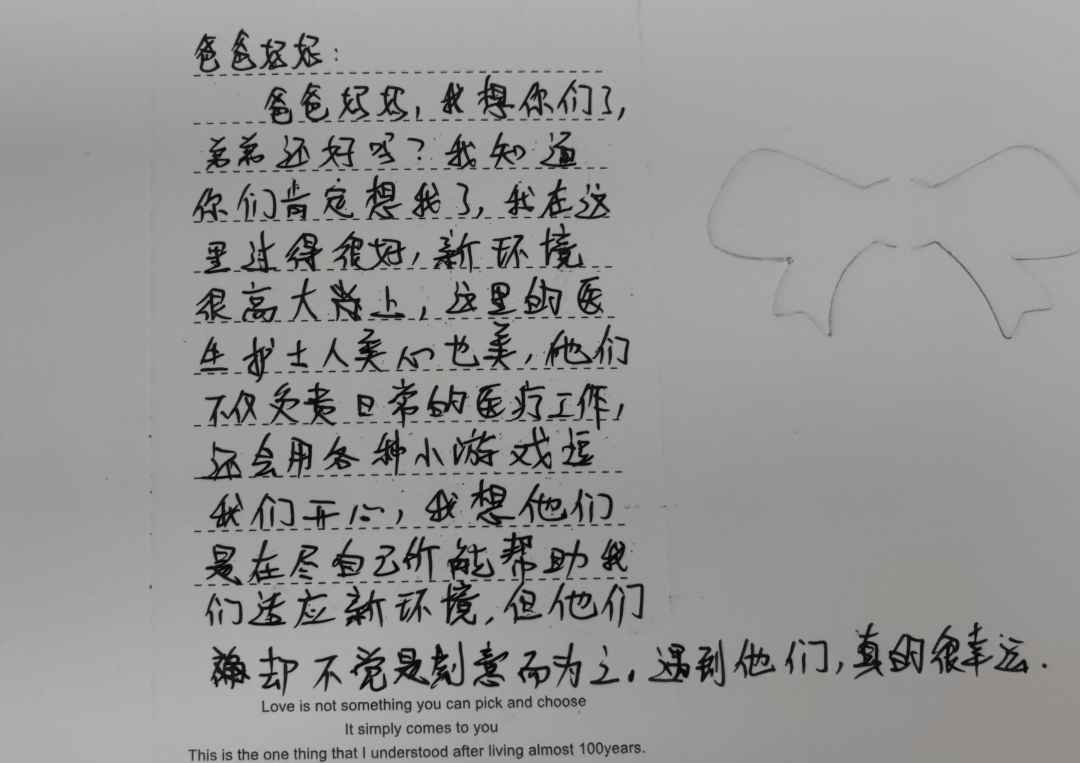 爸爸妈妈:
爸爸妈妈,我想你们了,
弟弟还好吗?我知道
你们肯定想我了,我在这
里过得很好,新环境
很高大尚上,这里的医
生护士人美心也美,他们
不仅负责日常的医疗工作,
还会用各种小游戏逗
我们开心,我想他们
是在尽自己价能帮助我
们适应新环境,但他们
却不觉是刻意而为之。遇到他们,真的很幸运.
Love is not something you can pick and choose
It simply comes to you
This is the one thing that I understood after living almost 100years.